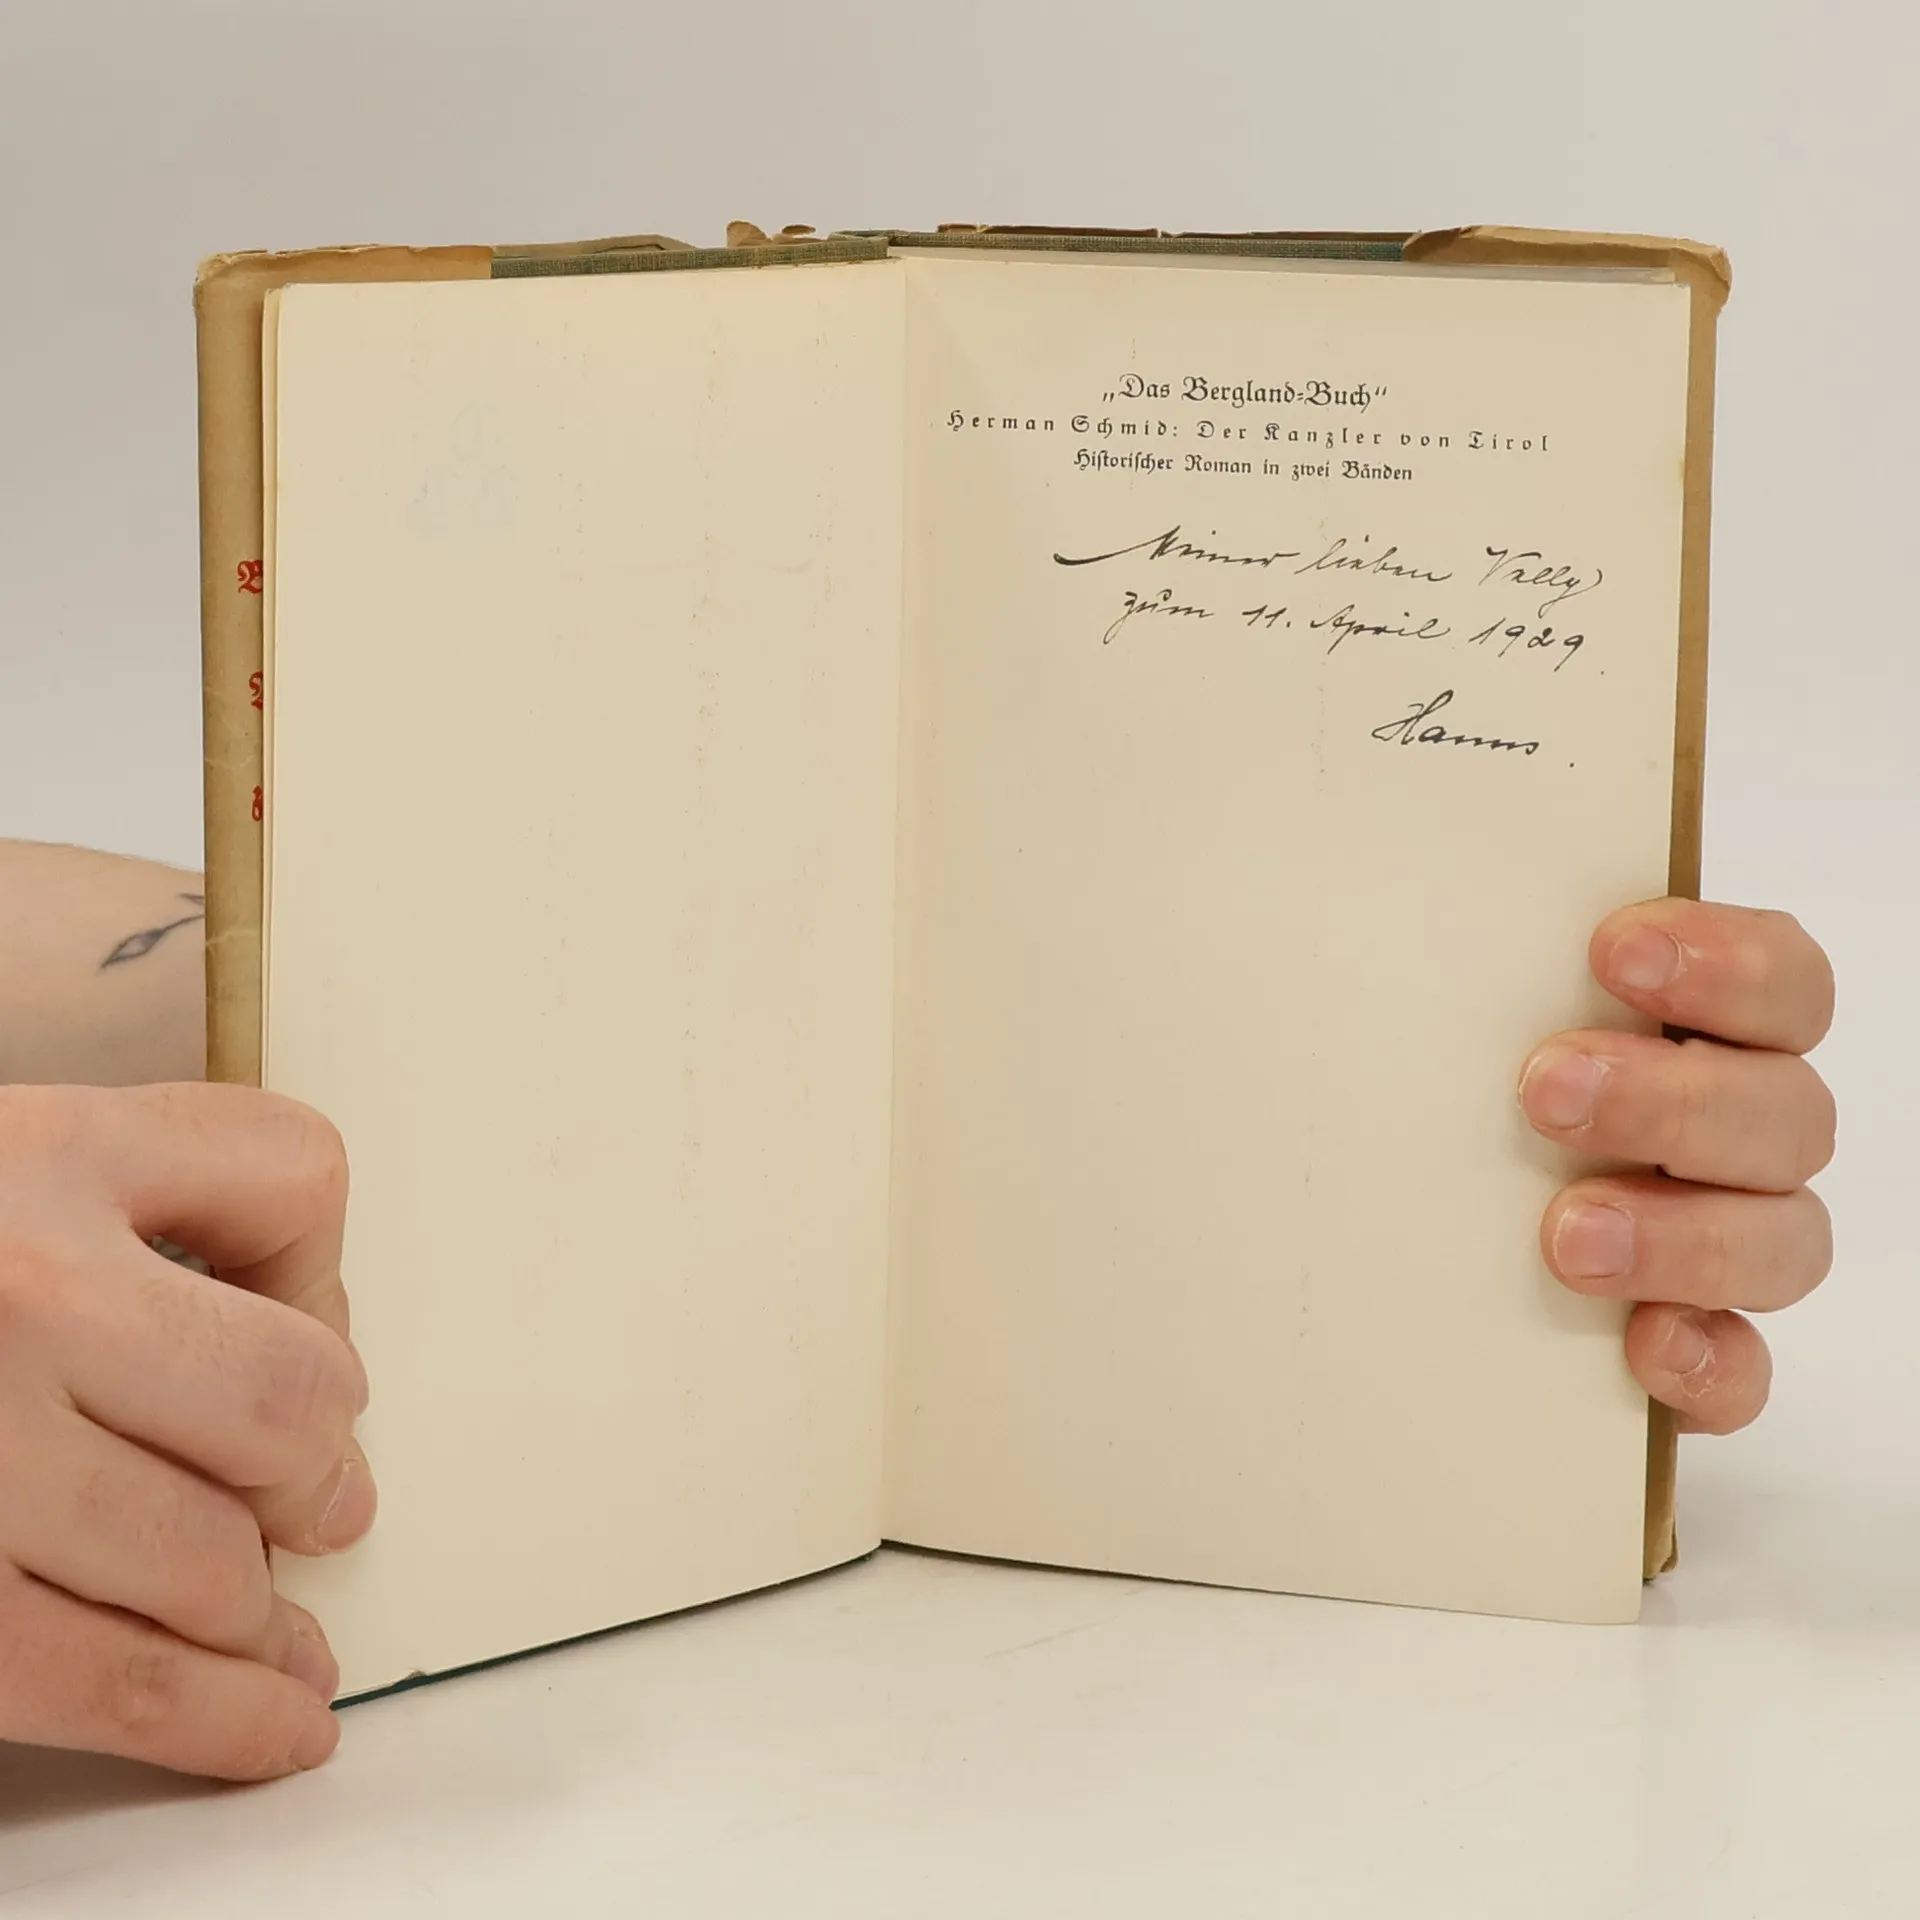 „Das Bergland-Buch“
Herman Schmid: Der Kanzler von Tirol
Historischer Roman in zwei Bänden
Meiner lieben Velly
zum 11. April 1929.
Hanns.